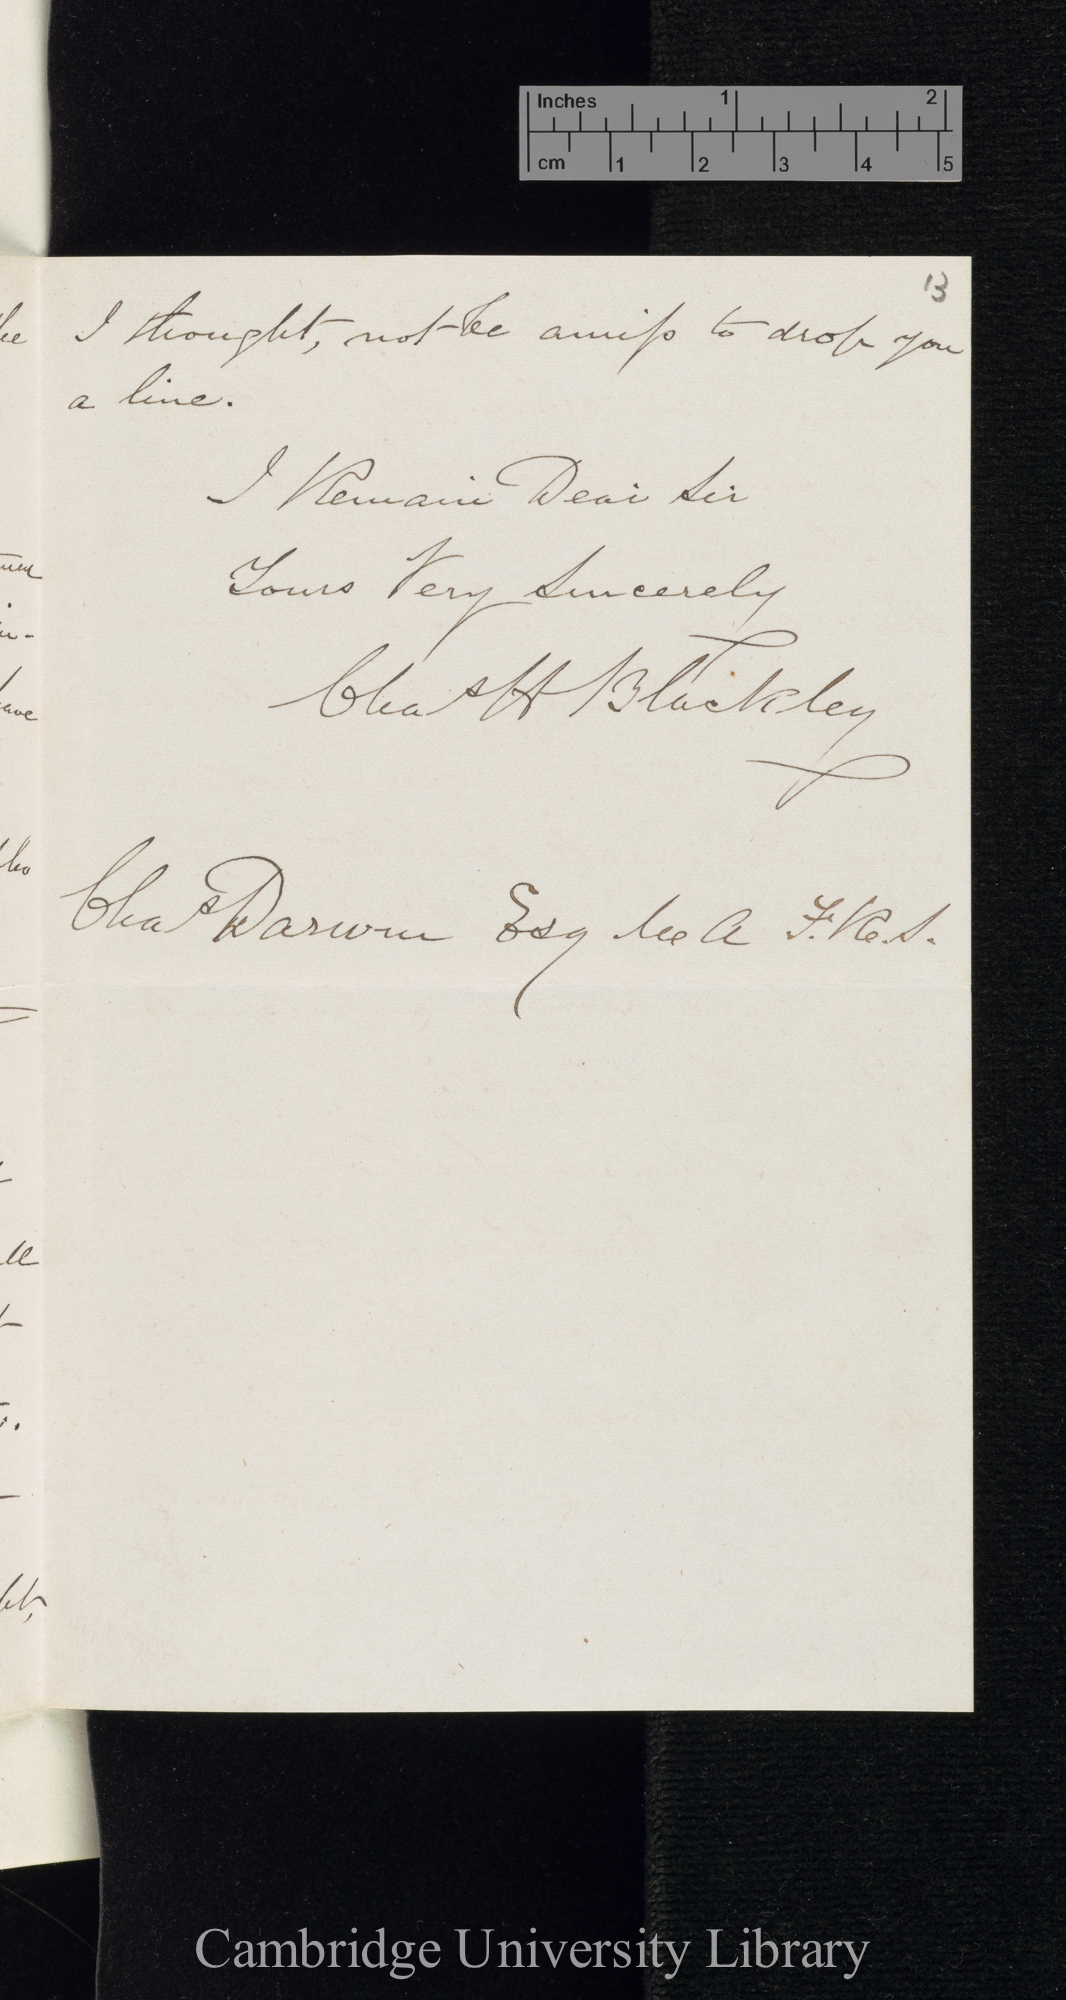 Inches 1 2
cm 1 2 3 4 5
13
I thought, not be amiss to drop you
a line.
I Remain Dear Sir
Yours Very Sincerely
Chas H Blackley
Chas Darwin Esq M A F.R.S.
he
have
who
Cambridge University Library